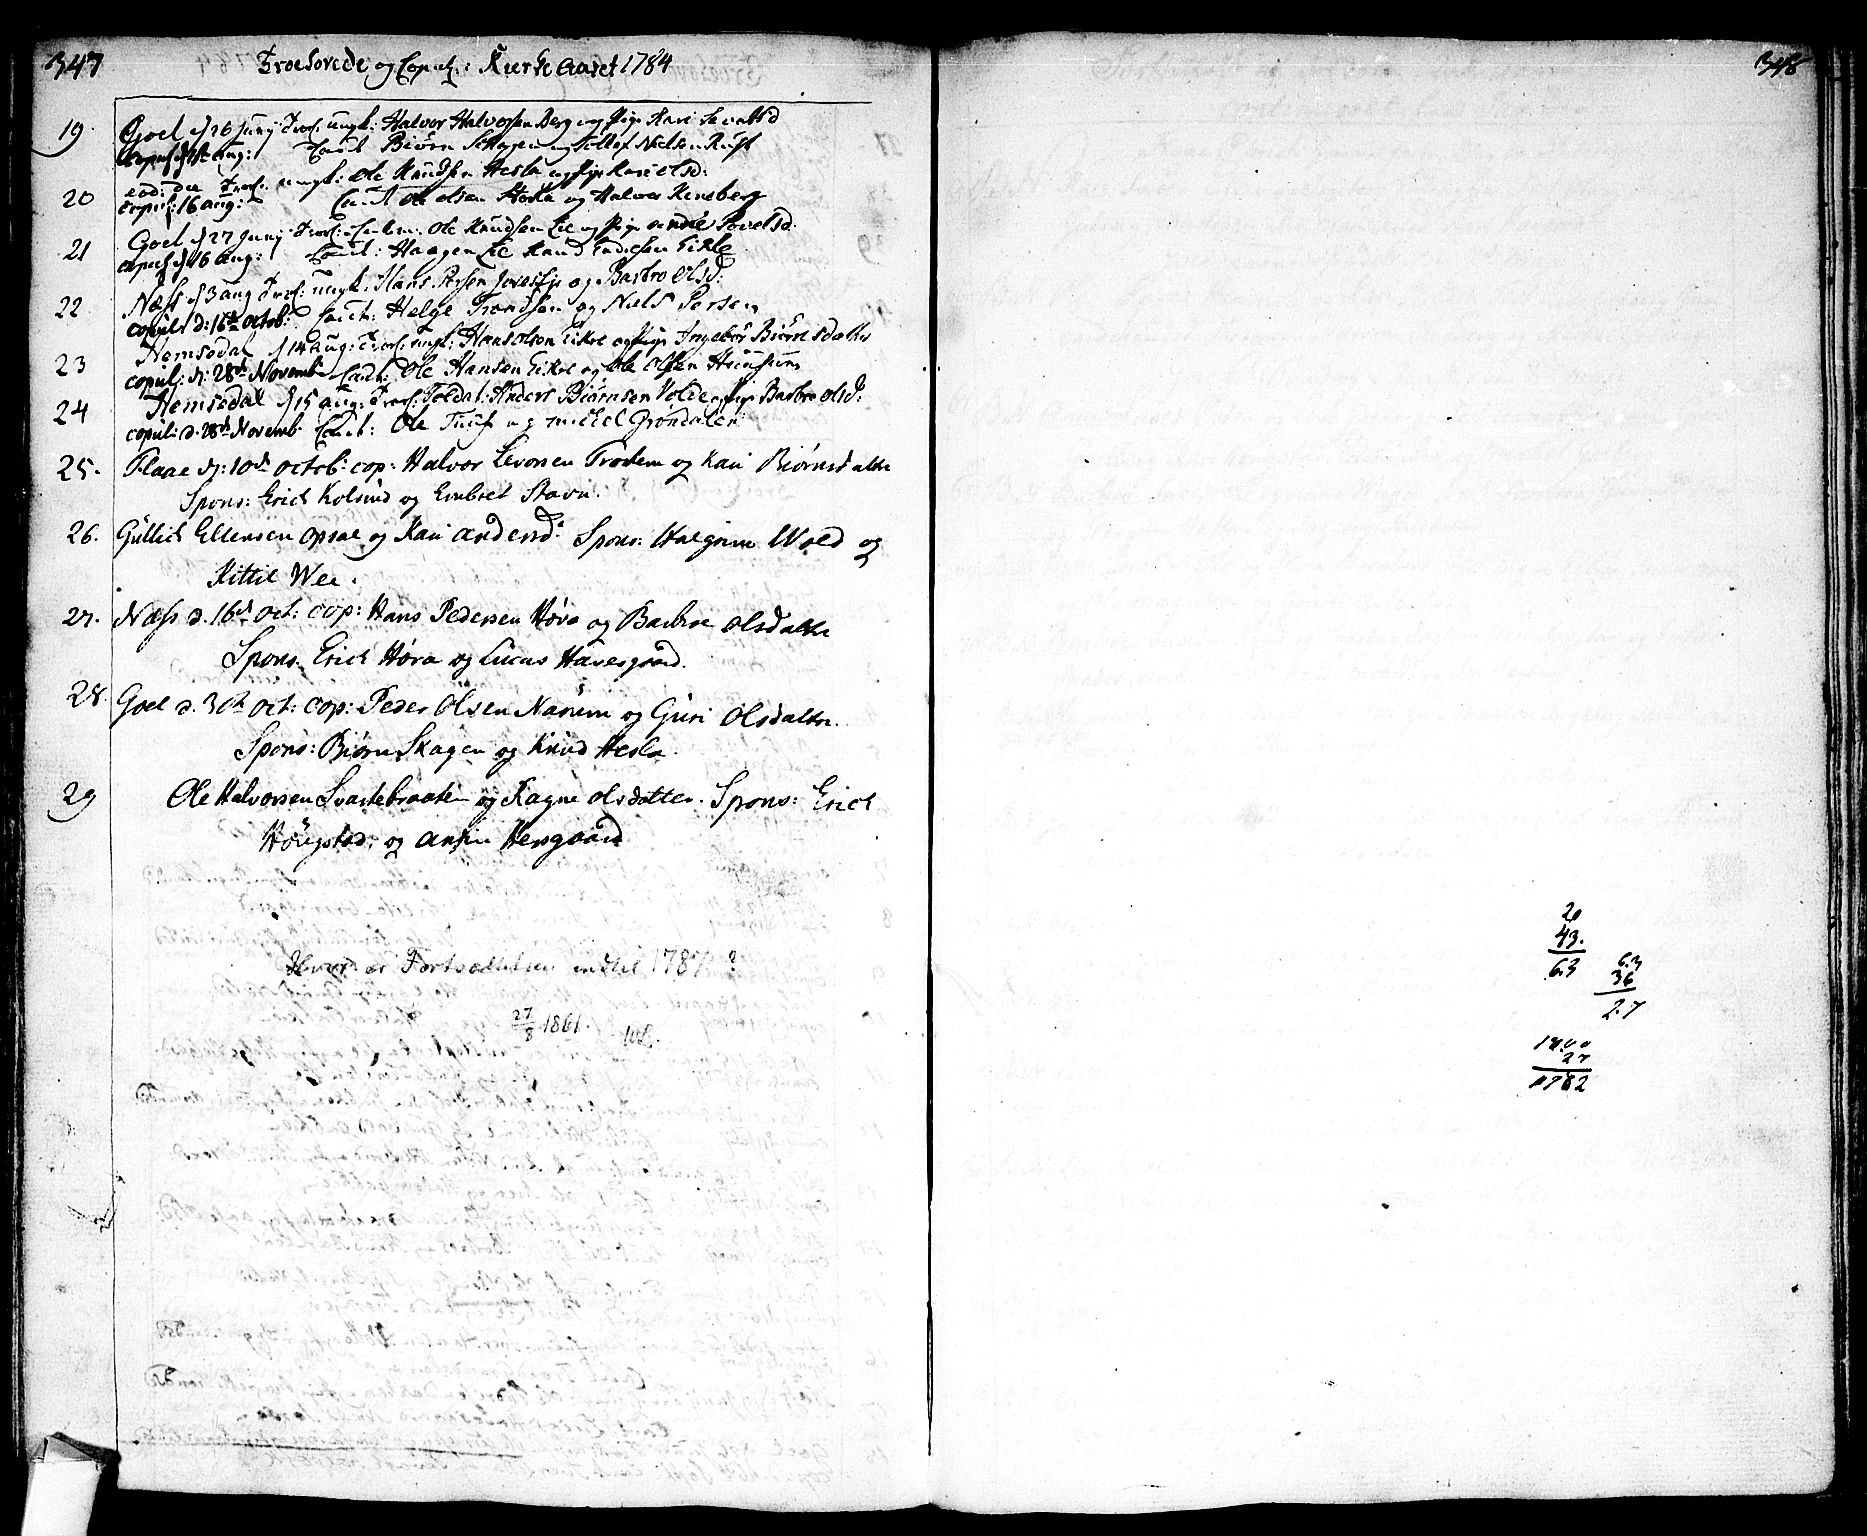 347
Troelovede og Copul: Kirke Aaret 1784
19. Goel d 26 Junij Trol: ungk: Halvor Halvorsen Berg og Pige Kari Sevaldsd
copul: d 1st Aug: Caut Biørn Schagen og Tollef Nielsen Rust
20 eod: die Trol: ungk: Ole Knudsen Hesla og Pige Kari Olsd:
copul: 16 aug: Caut Ole Olsen Hesla og Halvor Kinneberg
21 Goel d 27 Junij Trol: Ole Knudsen Lie og Pige Povelsd.
copul d 16 aug: Caut: Haagen Lie Knud Eikle
22 Næss d 3 aug Trol: ungk: Hans Persen og Barbro Olsd:
copul: d: 16de Octob: Caut: Helge Trondsen og Niels Persen
23 Hemsedal d 14 aug: Trol: ungk: Hans Olsen Eikre og Pige Ingebør Biørnsdatter
copul: d: 28de Novemb Caut: Ole Hansen Eikre og Ole Olsen
24 Hemsedal d 15 aug: Trol: Soldat: Anders Biørnsen Volde og Pige Barbro Olsd:
copul: d. 28de Novemb. Caut: Ole Tuuf og Michel Grøndalen
25. Flaae d: 10de Octob: cop: Halvor Levorsen Trostem og Kari Biørnsdatter
Spons: Erich Kolsrud og Embret Stavn.
26. Gullich Ellensen Opsae og Kari Andersd: Spons: Halgrim Wold og
Kittil Wee.
27. Næss d. 16de Oct: cop: Hans Pedersen Høva og Barbroe Olsdatter
Spons: Erich Høva og Lucas Haavesgaard.
28. Goel d. 30te Oct: cop: Peder Olsen Narum og Guri Olsdatter.
Spons: Biørn Skagen og Knud Hesla.
29 Ole Halvorsen Svartebraaten og Ragne Olsdatter. Spons: Erich
Høugstad; og Hersgaard
Hvor er Fortsættelsen indtil 1787?
27/8 1861.
348
20
43.
63
63
36
27
27
1782